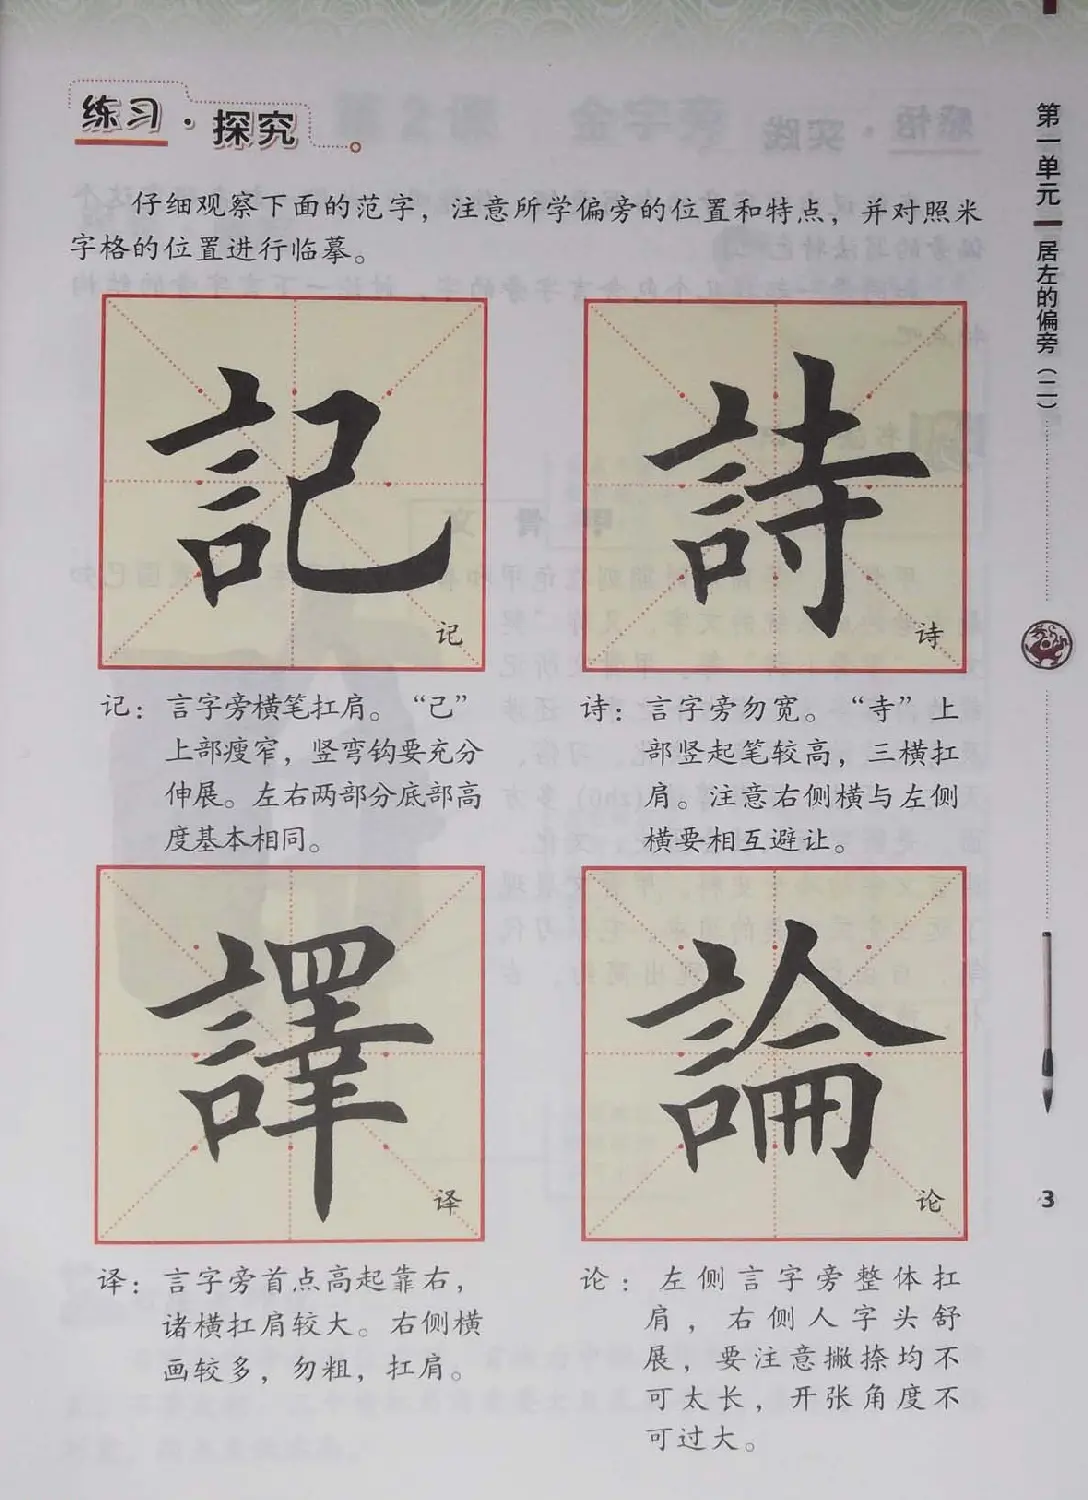 练习·探究
仔细观察下面的范字，注意所学偏旁的位置和特点，并对照米
字格的位置进行临摹。
記
记
記：言字旁横笔扛肩。“己”
上部瘦窄，竖弯钩要充分
伸展。左右两部分底部高
度基本相同。
詩
诗
诗：言字旁勿宽。“寺”上
部竖起笔较高，三横扛
肩。注意右侧横与左侧
横要相互避让。
譯
译
译：言字旁首点高起靠右，
诸横扛肩较大。右侧横
画较多，勿粗，扛肩。
論
论
论：左侧言字旁整体扛
肩，右侧人字头舒
展，要注意撇捺均不
可太长，开张角度不
可过大。
第一单元
居左的偏旁（二）
3